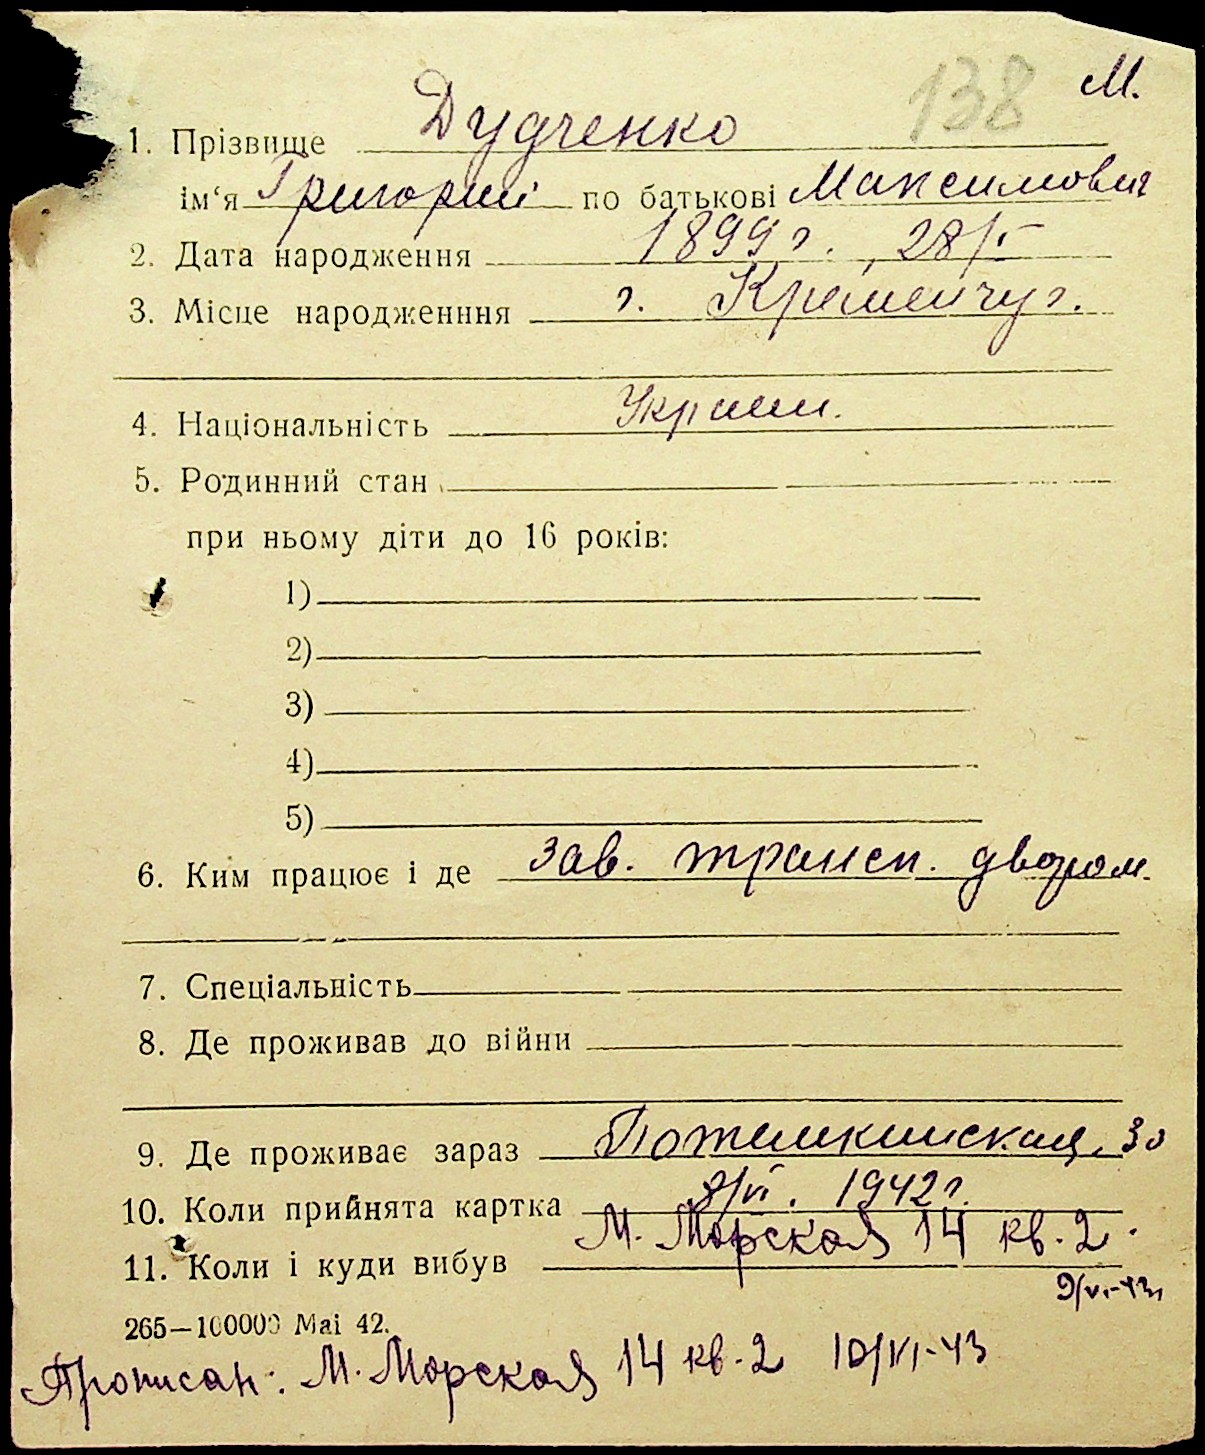 138 М.
1. Прізвище Дудченко
ім‘я Григорий по батькові Максимович
2. Дата народження 1899 г., 28/I
3. Місце народженння г. Кременчуг.
4. Національність Украин.
5. Родинний стан
при ньому діти до 16 років:
1)
2)
3)
4)
5)
6. Ким працює і де Зав. трансп. двором.
7. Спеціальність
8. Де проживав до війни
9. Де проживає зараз Потемкинская, 30
10. Коли прийнята картка 8/VI. 1942 г.
11. Коли і куди вибув М. Морская 14 кв. 2.
9/VI-43
265—100000 Mai 42.
Прописан: М. Морская 14 кв. 2 10/VI-43